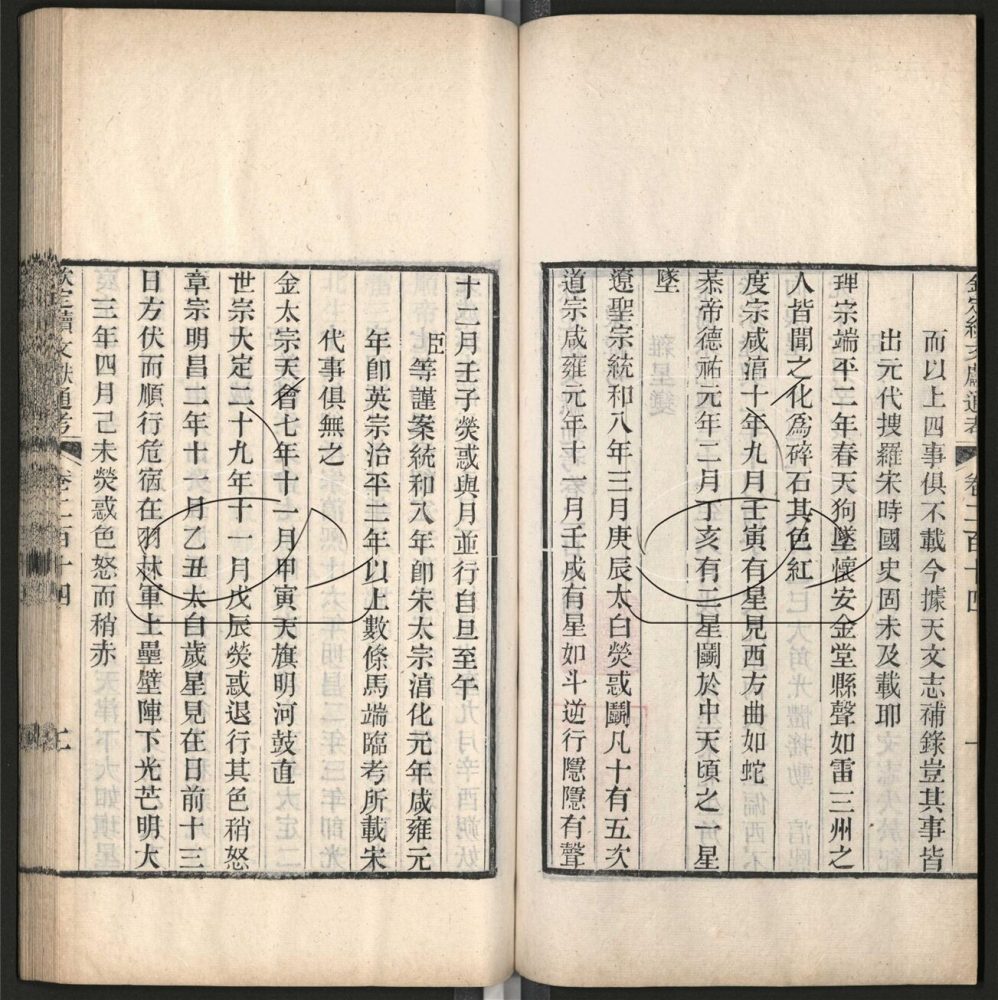 欽定續文獻通考 卷二百十四
而以上四事俱不載今據天文志補錄豈其事皆
出元代搜羅宋時國史固未及載耶
理宗端平三年春天狗墜懷安金堂縣聲如雷三州之
人皆聞之化爲碎石其色紅
度宗咸淳十年九月壬寅有星見西方曲如蛇
恭帝德祐元年二月丁亥有二星鬭於中天頃之一星
墜
遼聖宗統和八年三月庚辰太白熒惑鬭凡十有五次
道宗咸雍元年十一月壬戌有星如斗逆行隱隱有聲
十二月壬子熒惑與月並行自旦至午
臣等謹案統和八年卽宋太宗淳化元年咸雍元
年卽英宗治平二年以上數條馬端臨考所載宋
代事俱無之
金太宗天會七年十一月甲寅天旗明河鼓直
世宗大定二十九年十一月戊辰熒惑退行其色稍怒
章宗明昌二年十月乙丑太白歲星見在日前十三
日方伏而順行危宿在羽林軍上壘壁陣下光芒明大
三年四月己未熒惑色怒而稍赤
欽定續文獻通考 卷二百十四